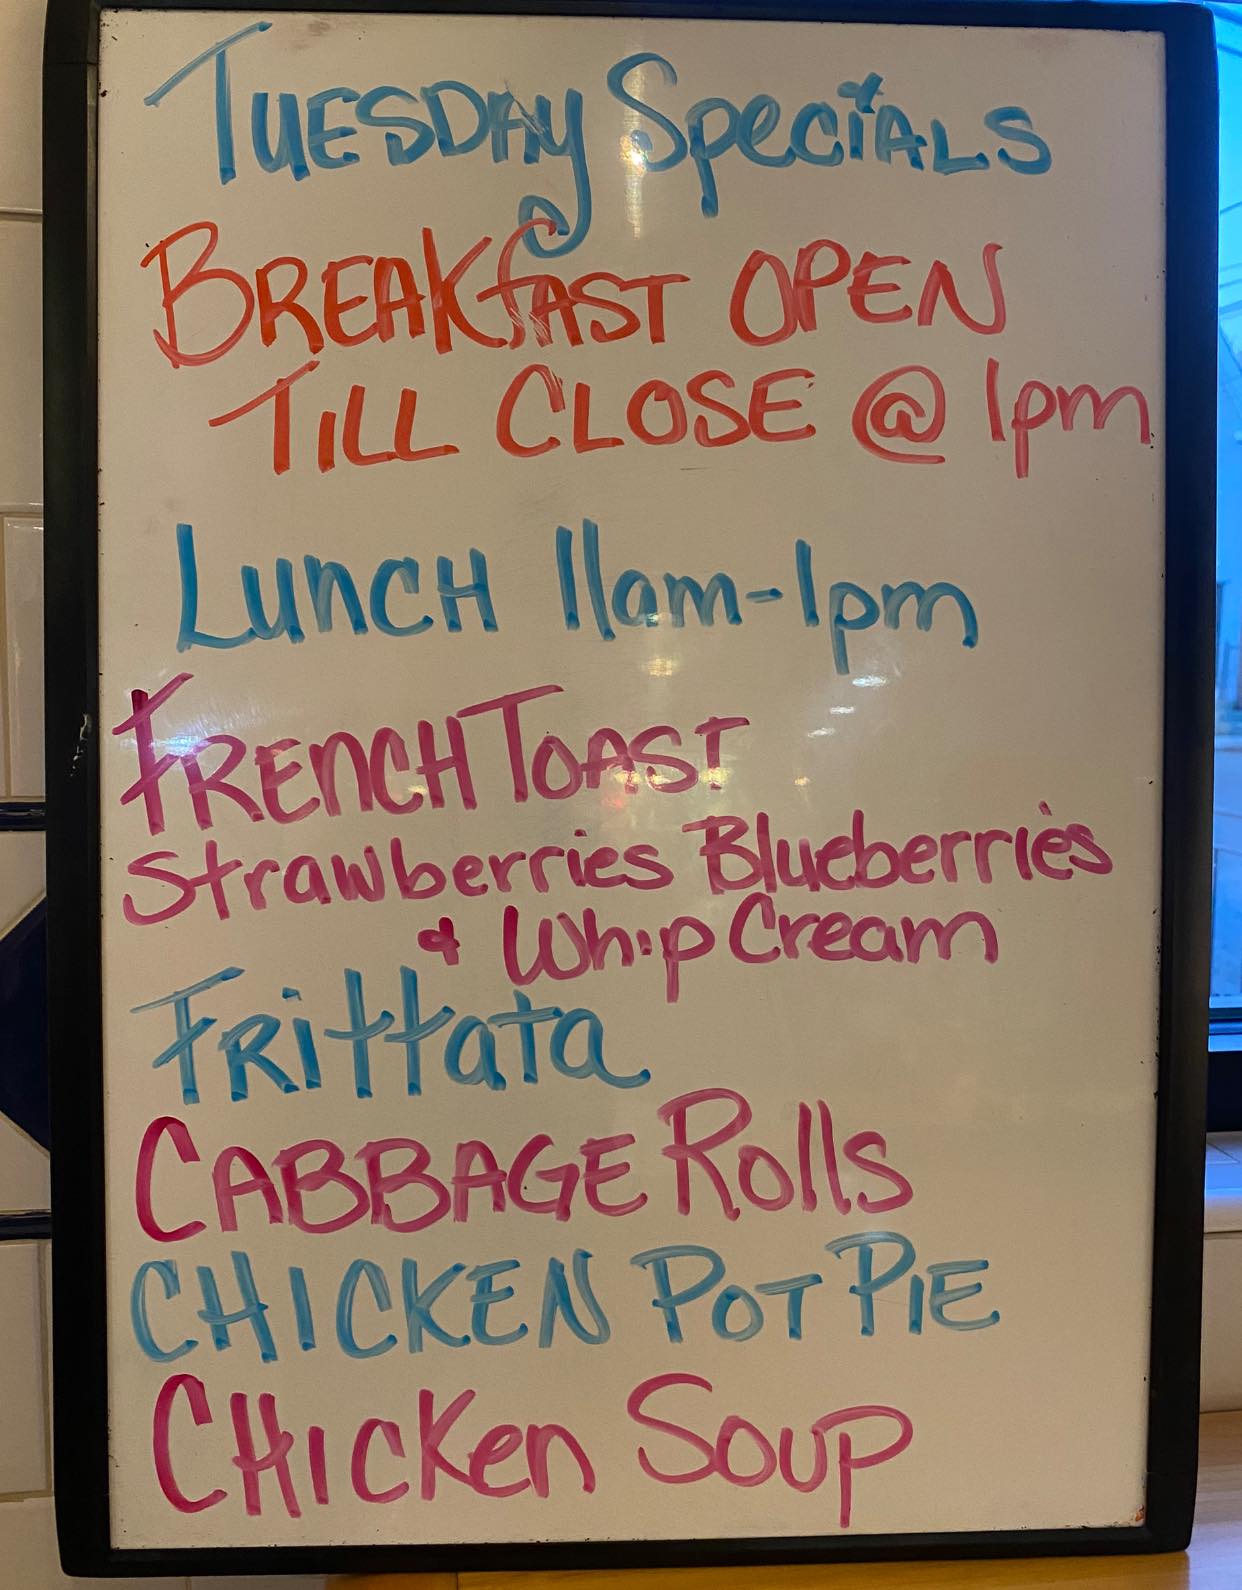 Tuesday Specials
Breakfast open
till close @ 1pm
Lunch 11am-1pm
French Toast
Strawberries Blueberries
& Whip Cream
Frittata
Cabbage Rolls
Chicken Pot Pie
Chicken Soup